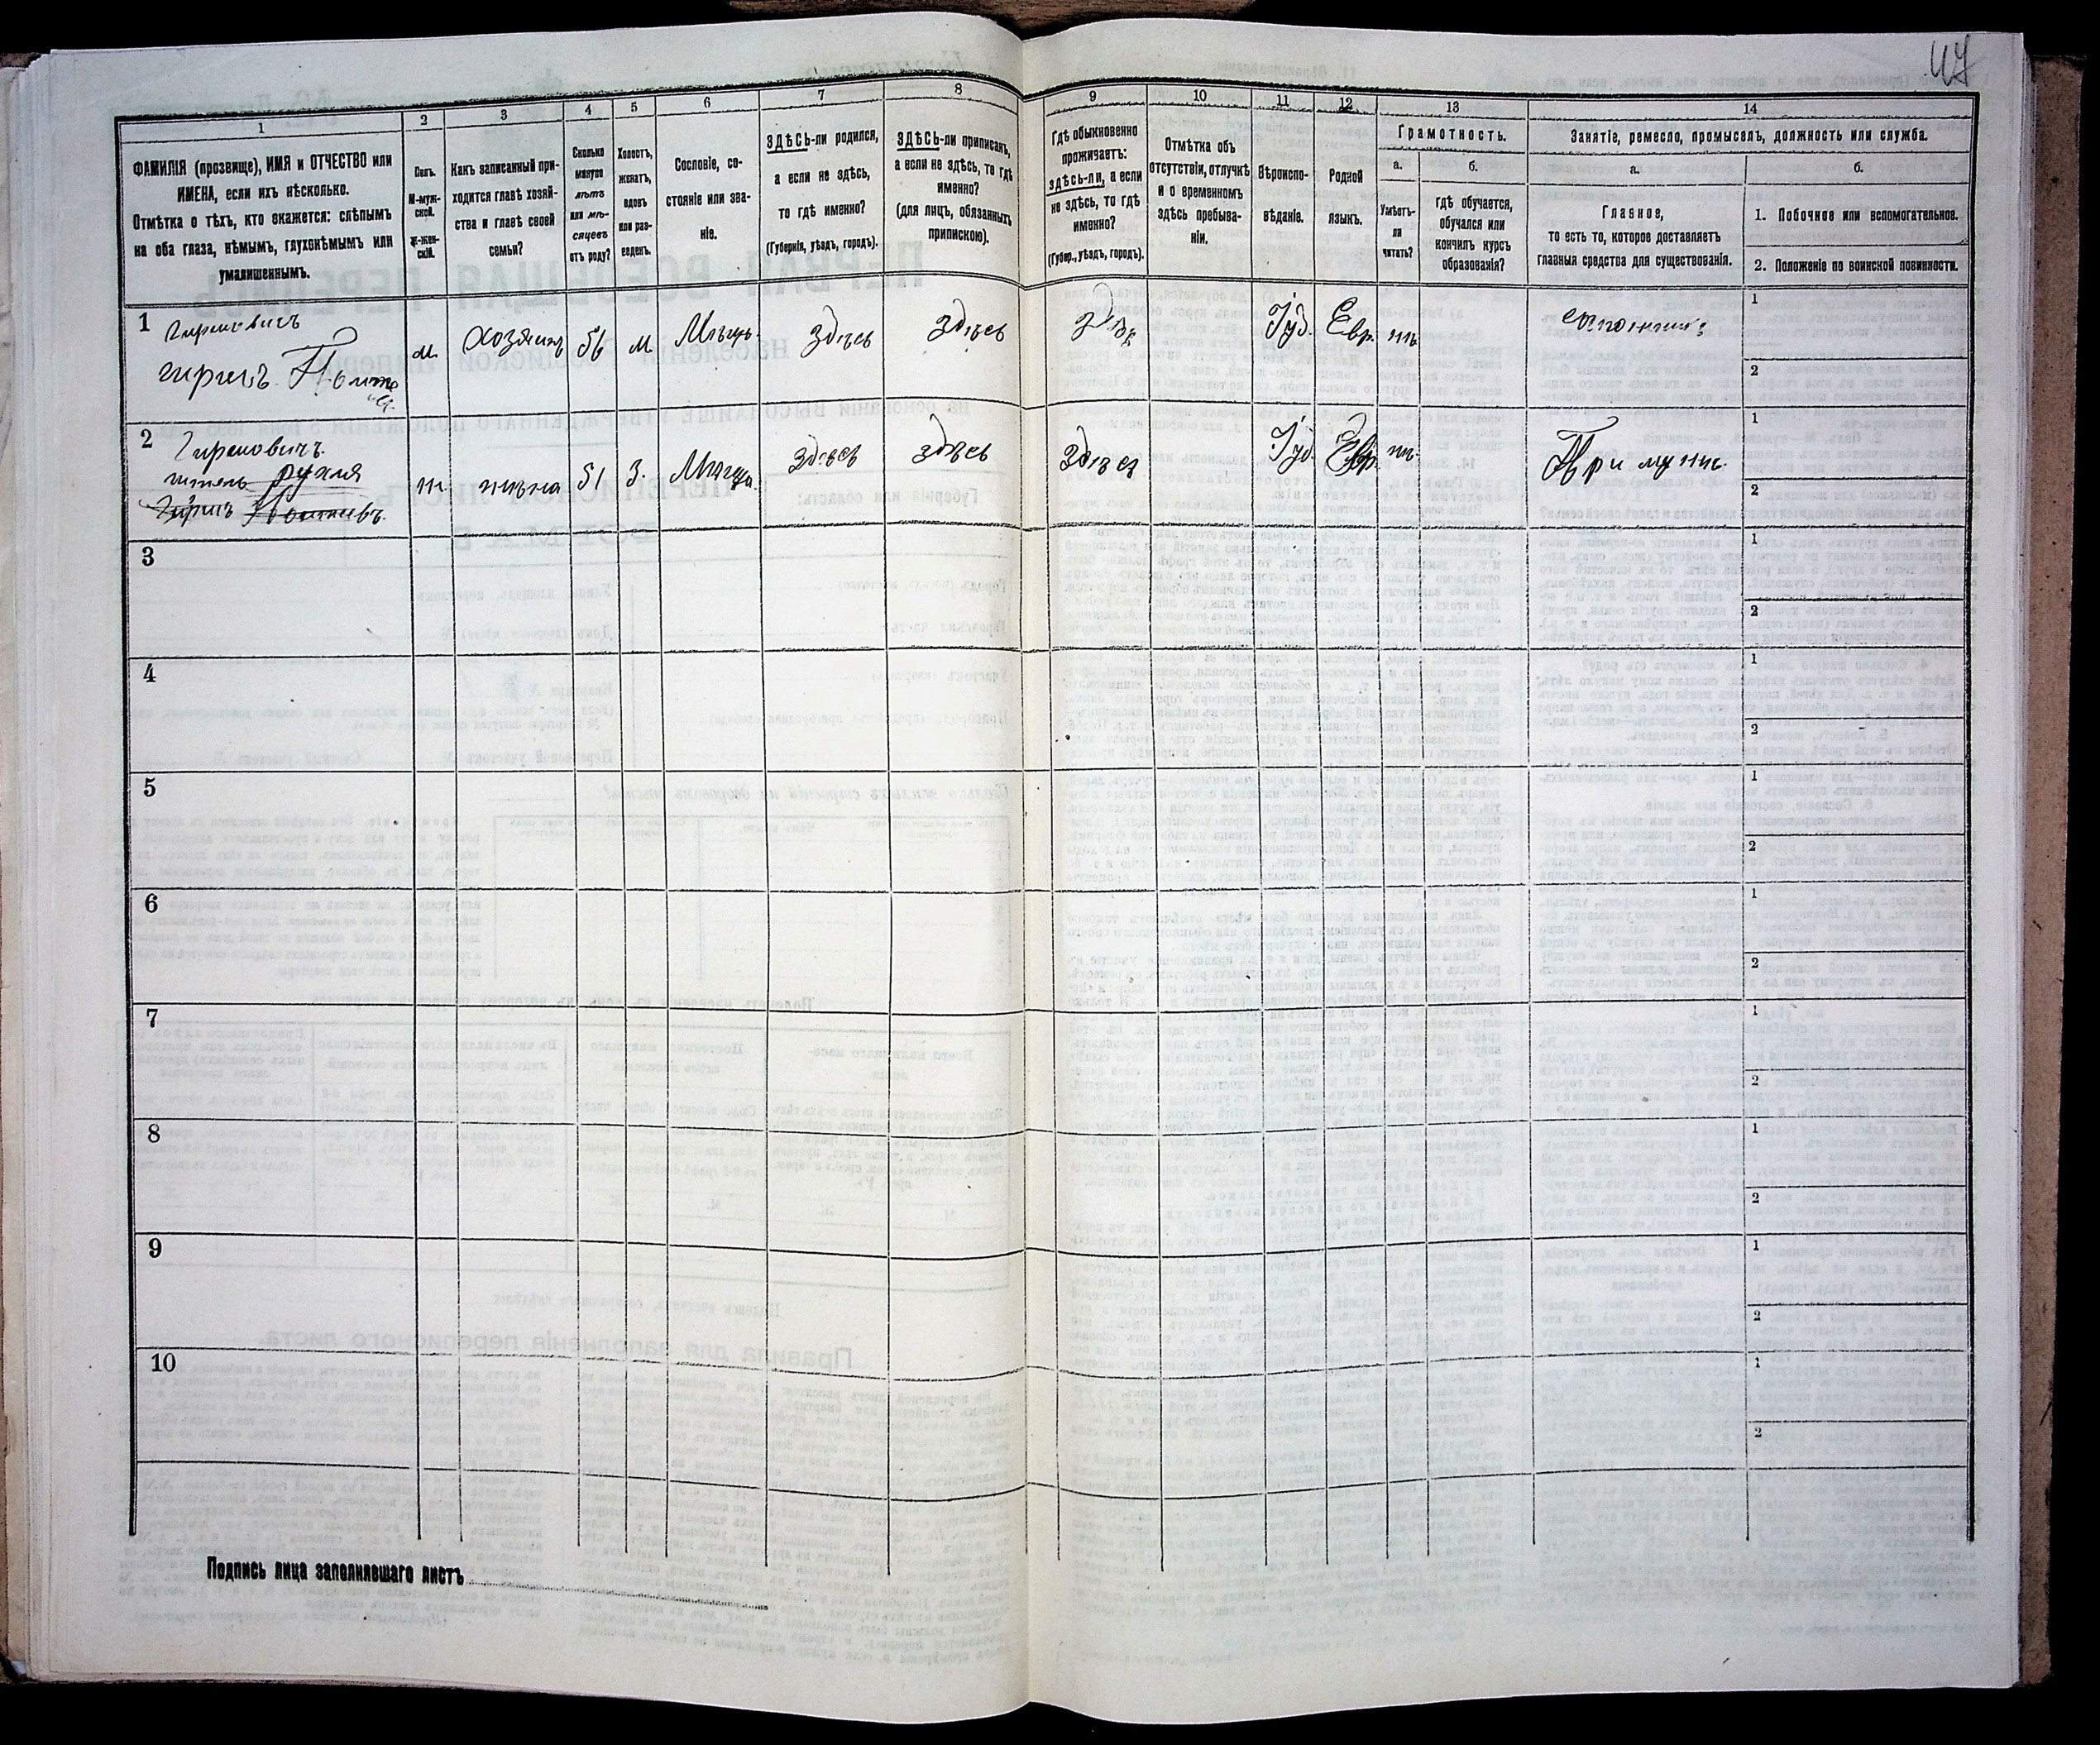 47
1
2
3
4
5
6
7
8
9
10
11
12
13
14
ФАМИЛІЯ (прозвище), ИМЯ и ОТЧЕСТВО или
ИМЕНА, если ихъ нѣсколько.
Отмѣтка о тѣхъ, кто окажется: слѣпымъ
на оба глаза, нѣмымъ, глухонѣмымъ или
умалишеннымъ.
Полъ.
М-муж-
ской.
Ж-жен-
скій.
Какъ записанный при-
ходится главѣ хозяй-
ства и главѣ своей
семьи?
Сколько
минуло
лѣтъ
или мѣ-
сяцевъ
отъ роду?
Холостъ,
женатъ,
вдовъ
или раз-
веденъ.
Сословіе, со-
стояніе или зва-
ніе.
ЗДѢСЬ-ли родился,
а если не здѣсь,
то гдѣ именно?
(Губернія, уѣздъ, городъ).
ЗДѢСЬ-ли приписанъ,
а если не здѣсь, то гдѣ
именно?
(для лицъ, обязанныхъ
припискою).
Гдѣ обыкновенно
проживаетъ:
здѣсь-ли, а если
не здѣсь, то гдѣ
именно?
(Губер., уѣздъ, городъ).
Отмѣтка объ
отсутствіи, отлучкѣ
и о временномъ
здѣсь пребыва-
ніи.
Вѣроиспо-
вѣданіе.
Родной
языкъ.
Грамотность.
а.
Умѣетъ-
ли
читать?
б.
гдѣ обучается,
обучался или
кончилъ курсъ
образованія?
Занятіе, ремесло, промыселъ, должность или служба.
а.
Главное,
то есть то, которое доставляетъ
главныя средства для существованія.
б.
1. Побочное или вспомогательное.
2. Положеніе по воинской повинности.
1
м.
Хозяинъ
56
Мѣщ.
Здѣсь
Здѣсь
Здѣсь
Іуд.
Евр.
1
2
2
Гиршовичъ
жена
51
З.
Здѣсь
Здѣсь
Здѣсь
Іуд.
Евр.
При мужѣ
1
2
3
1
2
4
1
2
5
1
2
6
1
2
7
1
2
8
1
2
9
1
2
10
1
2
Подпись лица заполнявшаго листъ